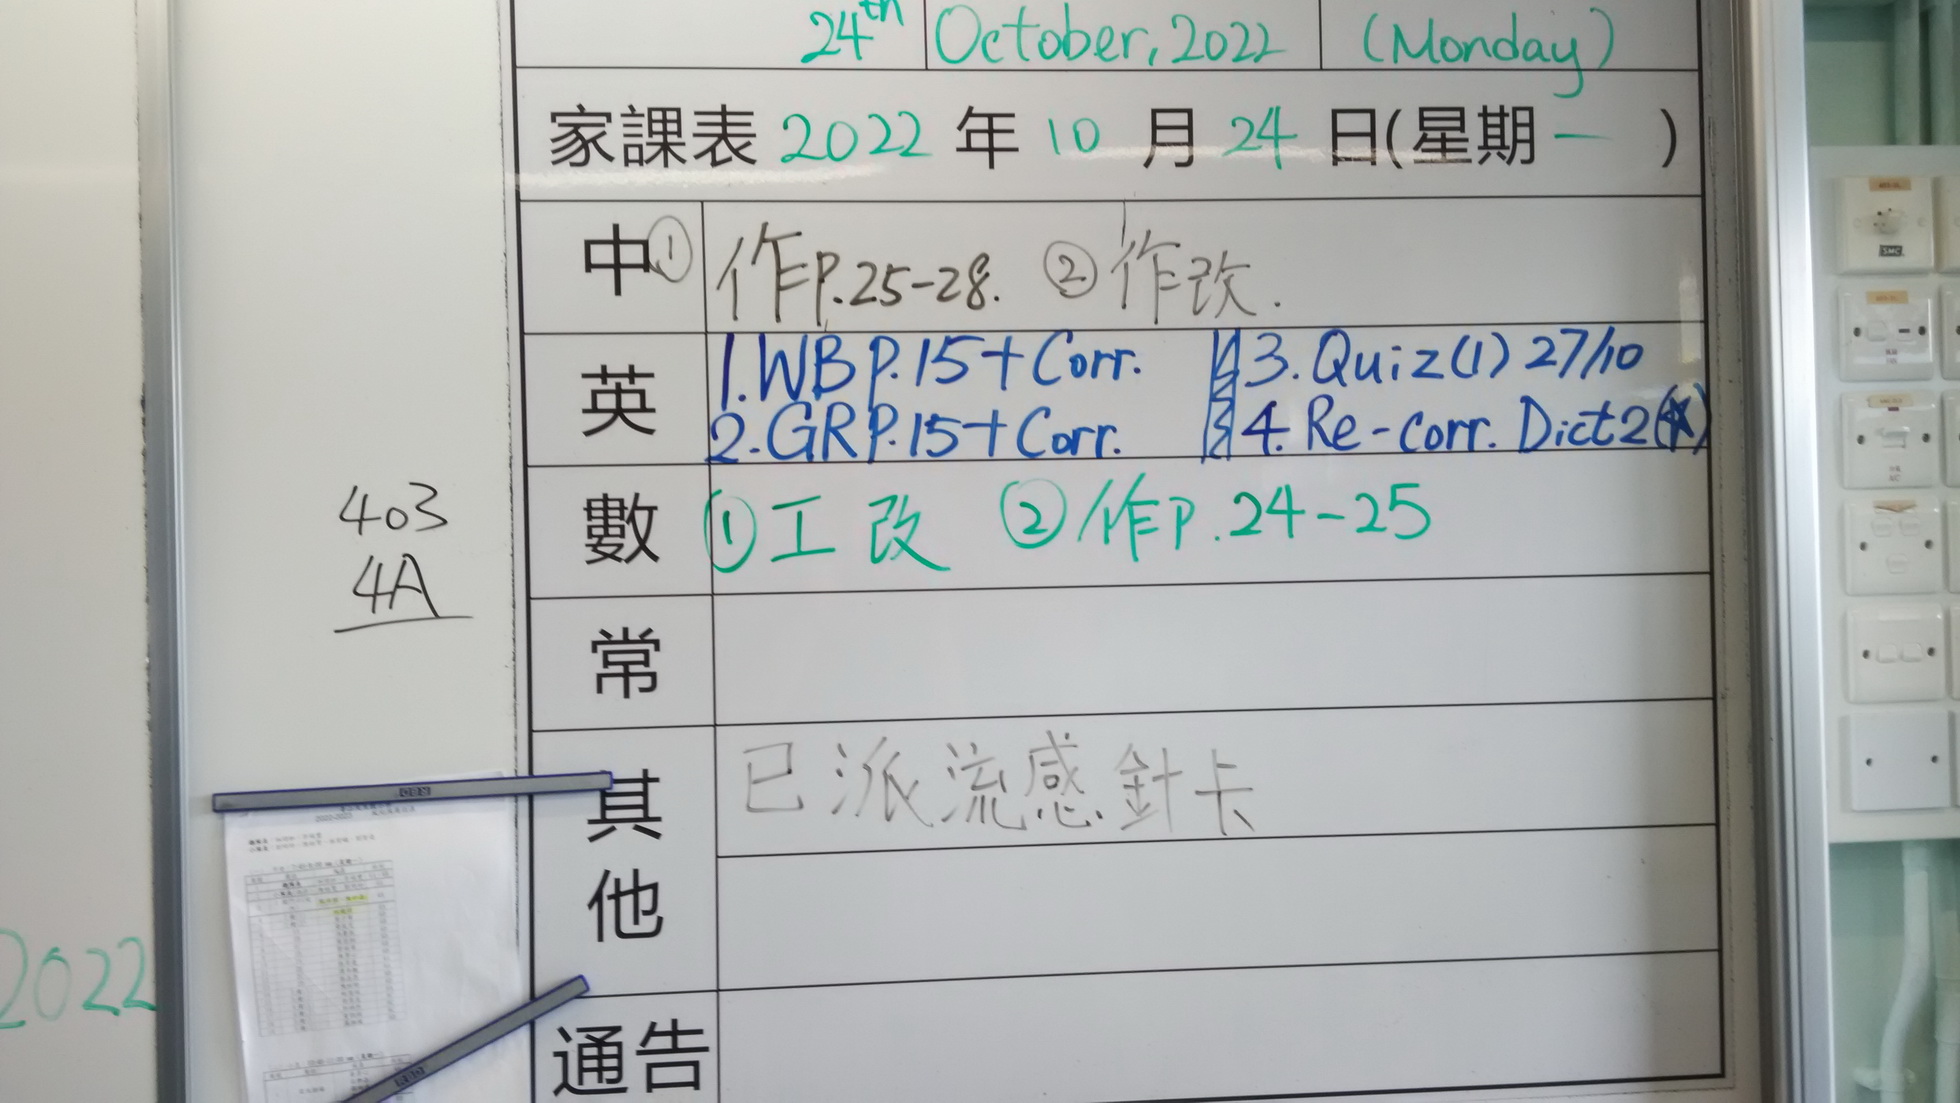 24th October, 2022 (Monday)
家課表 2022 年 10 月 24 日(星期一 )
中 ① 作P.25-28. ② 作改.
英 1. WB P.15 + Corr. 3. Quiz (1) 27/10
2. GR P.15 + Corr. 4. Re-corr. Dict 2 (*)
數 ① 工改 ② 作P.24-25
403
4A
常
其他 已派流感針卡
2022
通告